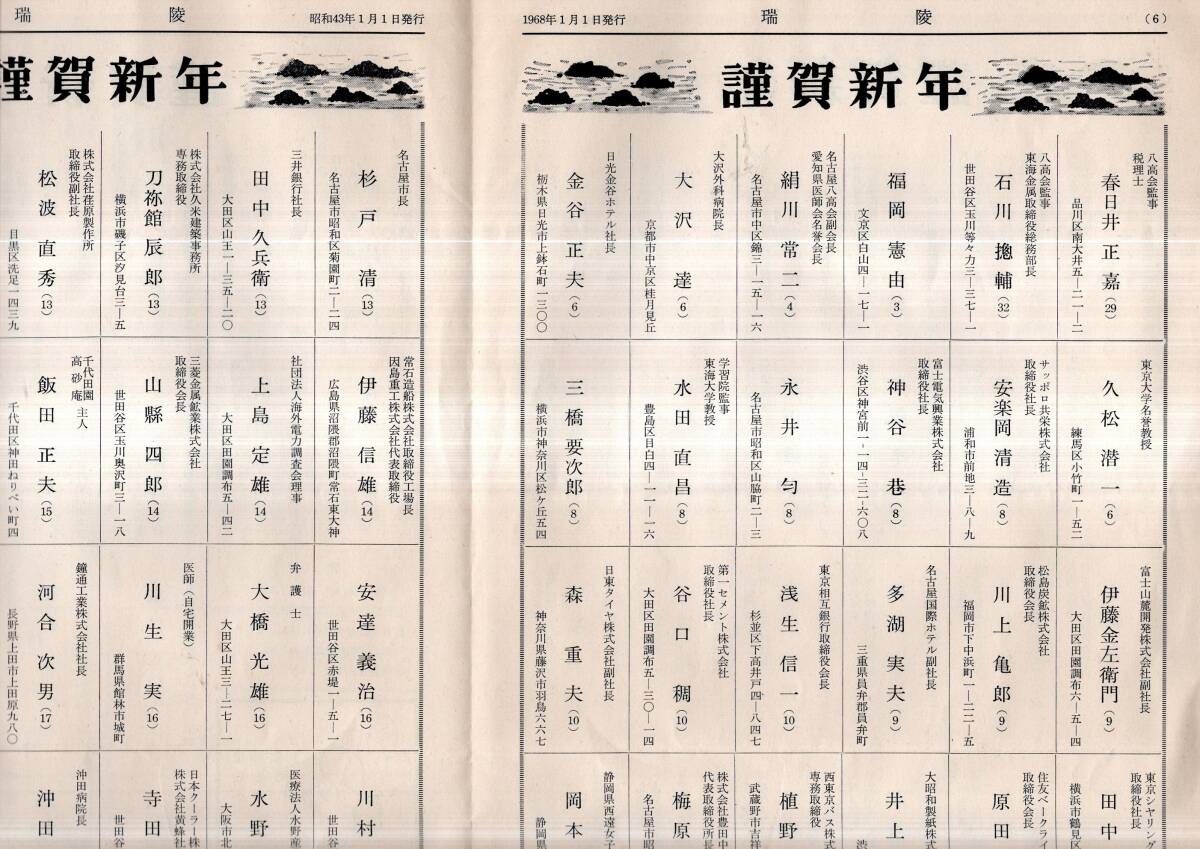 (6)
瑞陵
1968年1月1日発行
謹賀新年
八高会監事
税理士
春日井正嘉(29)
品川区南大井五―二一―二
八高会監事
東海金属取締役総務部長
石川摠輔(32)
世田谷区玉川等々力三―三七―一
福岡憲由(3)
文京区白山四―一七―一
名古屋八高会副会長
愛知県医師会名誉会長
絹川常二(4)
名古屋市中区錦三―一五―一六
大沢外科病院長
大沢達(6)
京都市中京区桂月見丘
日光金谷ホテル社長
金谷正夫(6)
栃木県日光市上鉢石町一三〇〇
東京大学名誉教授
久松潜一(6)
練馬区小竹町一―五二
サッポロ共栄株式会社
取締役社長
安楽岡清造(8)
浦和市前地三―八―九
富士電気興業株式会社
取締役社長
神谷巷(8)
渋谷区神宮前一―一四―三二―六〇八
永井匀(8)
名古屋市昭和区山脇町二―三
学習院監事
東海大学教授
水田直昌(8)
豊島区目白四―一一―一六
三橋要次郎(8)
横浜市神奈川区松ケ丘五四
富士山麓開発株式会社副社長
伊藤金左衛門(9)
大田区田園調布六―五―四
松島炭鉱株式会社
取締役会長
川上亀郎(9)
福岡市下中浜町一―二二―五
名古屋国際ホテル副社長
多湖実夫(9)
三重県員弁郡員弁町
東京相互銀行取締役会長
浅生信一(10)
杉並区下高井戸四―八四七
第一セメント株式会社
取締役社長
谷口稠(10)
大田区田園調布五―三〇―一四
日東タイヤ株式会社副社長
森重夫(10)
神奈川県藤沢市羽鳥六六七
東京シヤリング
取締役社長
田中
横浜市鶴見区
住友ベークライ
取締役会長
原田
大昭和製紙株式
井上
渋
西東京バス株式
専務取締役
植野
武蔵野市吉祥
株式会社豊田中
代表取締役所長
梅原
名古屋市昭
静岡県西遠女子
岡本
静岡県
昭和43年1月1日発行
瑞陵
謹賀新年
名古屋市長
杉戸清(13)
名古屋市昭和区菊園町二―二四
三井銀行社長
田中久兵衛(13)
大田区山王一―三五―二〇
株式会社久米建築事務所
専務取締役
刀祢館辰郎(13)
横浜市磯子区汐見台三―五
株式会社荏原製作所
取締役副社長
松波直秀(13)
目黒区洗足一四三九
常石造船株式会社取締役工場長
因島重工株式会社代表取締役
伊藤信雄(14)
広島県沼隈郡沼隈町常石東大神
社団法人海外電力調査会理事
上島定雄(14)
大田区田園調布五―四二
三菱金属鉱業株式会社
取締役会長
山縣四郎(14)
世田谷区玉川奥沢町三―一八
千代田園
高砂庵 主人
飯田正夫(15)
千代田区神田ねりべい町四
安達義治(16)
世田谷区赤堤一―五―一
弁護士
大橋光雄(16)
大田区山王三―二七―一
医師(自宅開業)
川生実(16)
群馬県館林市城町
鐘通工業株式会社社長
河合次男(17)
長野県上田市上田原九八〇
川村
世田谷
医療法人水野産
水野
大阪市北
日本クーラー株
株式会社黄蜂社
寺田
世田谷
沖田病院長
沖田